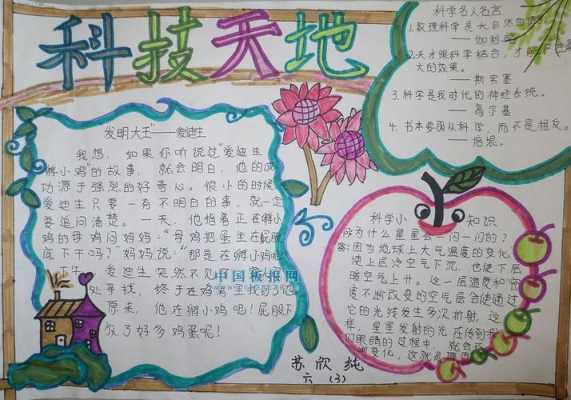 科技天地
发明大王"——爱迪生
我想,如果你听说过"爱迪生
孵小鸡"的故事,就会明白,他的成
功源于强烈的好奇心。很小的时候
爱迪生只要一有不明白的事,就一定
要追问清楚。一天,他指着正在孵小
鸡的母鸡问妈妈:"母鸡把蛋坐在屁股
底下干吗?"妈妈说:"那是在孵小鸡呢
爱迪生突然不见
处寻找,终于在鸡窝里找到了他
原来,他在孵小鸡吧!屁股下
放了好多鸡蛋呢!
中国板报网
科学名人名言
1.数理科学是大自然
——伽利略
2.天才跟科学结合,才
大的效果。
——斯宾塞
3.科学是我时代的神经系统。
——高尔基
4.书本要围从科学,而不是相反。
——培根。
科学小知识
为什么星星会一闪一闪的?
答:因为地球上大气温度的变化
使上层冷空气下沉,也使下层
暖空气上升。这一层温度和密
度不断改变的空气层会使通过
它的光线发生多次折射,这
样,星星发射的光在传到
们眼睛的过程中,就会
变化,这就
苏欣纯
六(3)